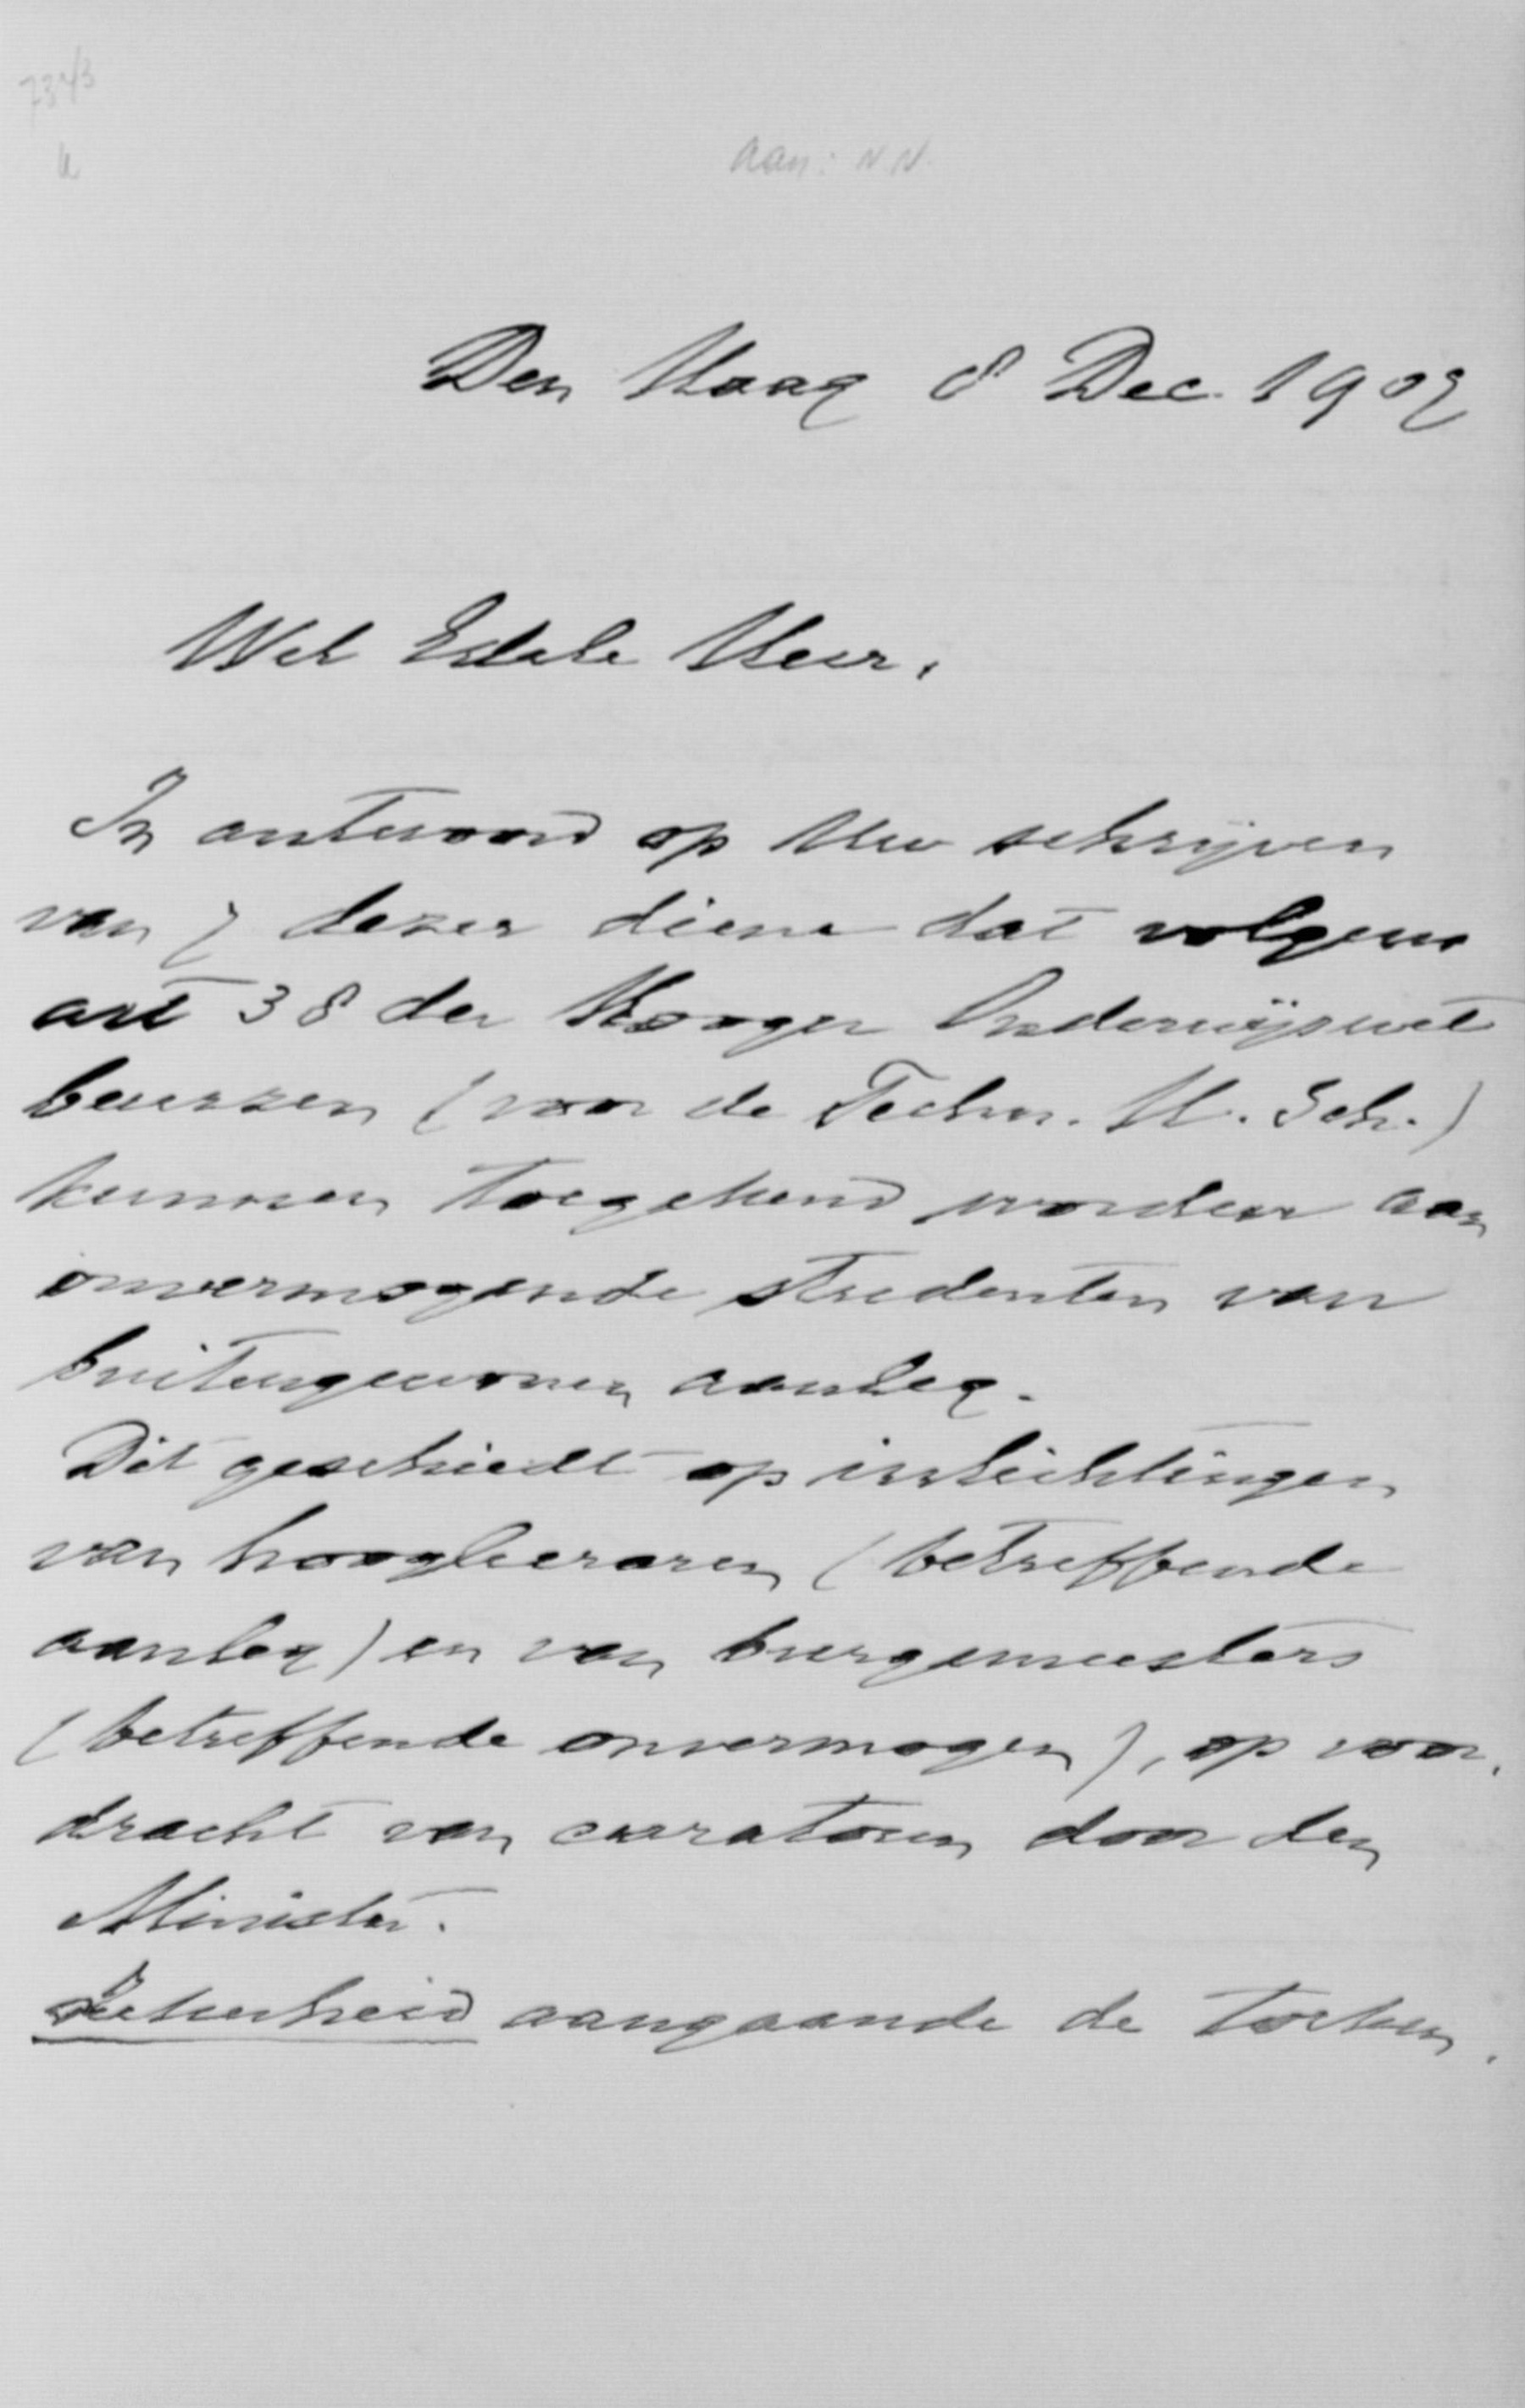 Aan: N.N.
Den Haag 8 Dec. 1909
Wel Edele Heer,
In antwoord op Uw schrijven
van 7 dezer diene dat volgens
art 38 der Hooger Onderwijswet
beurzen (voor de Techn. H. Sch.)
kunnen toegekend worden aan
onvermogende studenten van
buitengewonen aanleg.
Dit geschiedt op inlichtingen
van hoogleeraren (betreffende
aanleg) en van burgemeesters
(betreffende onvermogen), op voor-
dracht van curatoren door den
Minister.
Zekerheid aangaande de toeken-